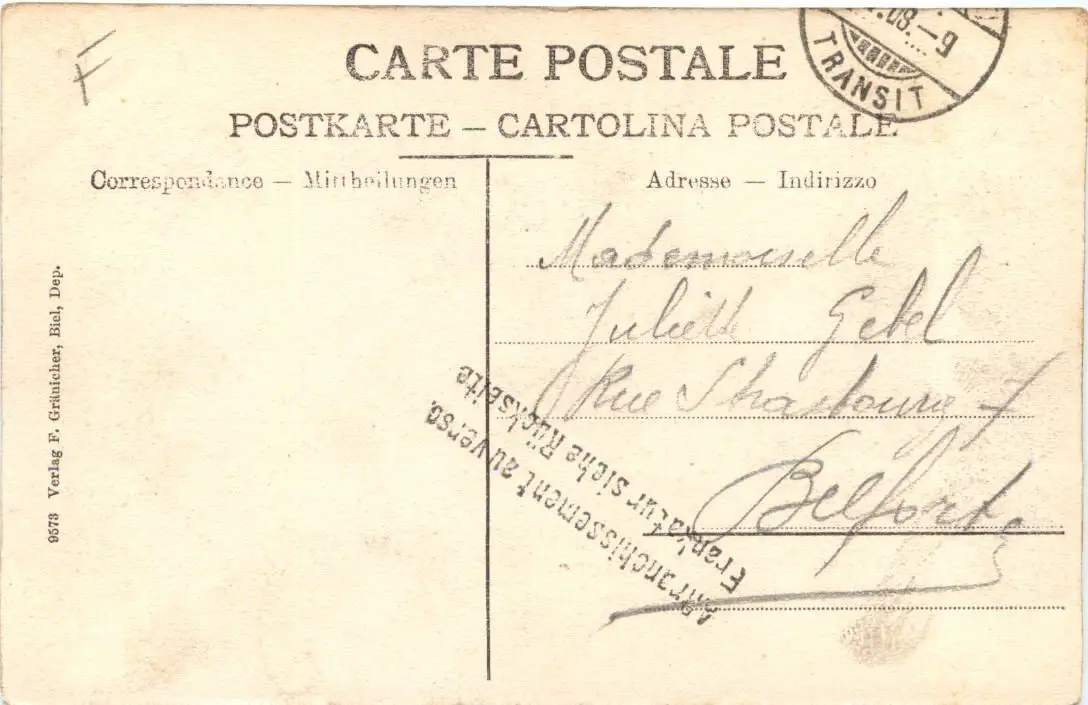 F
CARTE POSTALE
POSTKARTE — CARTOLINA POSTALE
.08.—9
TRANSIT
Correspondance — Mittheilungen
Adresse — Indirizzo
Mademoiselle
Juliette Gebel
Rue Strasbourg 7
Belfort
Affranchissement au verso.
Frankatur siehe Rückseite
9573 Verlag F. Gränicher, Biel, Dep.